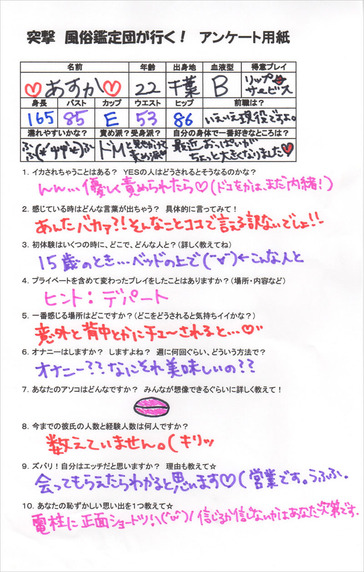 突撃 風俗鑑定団が行く! アンケート用紙
名前 年齢 出身地 血液型 得意プレイ
♡あすか♡ 22 千葉 B リップサービス
身長 バスト カップ ウエスト ヒップ 前職は?
165 85 E 53 86 いえいえ現役ですよ。
濡れやすいかな? 責め派?受身派? 自分の身体で一番好きなところは?
最近おっぱいがちょっと大きくなりました♡
1. イカされちゃうことはある? YESの人はどうされるとそうなるのかな?
んん…優しく責められたら♡(ドコをかは、まだ内緒!)
2. 感じている時はどんな言葉が出ちゃう? 具体的に言ってみて!
あんたバカァ?!そんなことココで言える訳ないでしょ!!
3. 初体験はいくつの時に、どこで、どんな人と?(詳しく教えてね)
4. プライベートを含めて変わったプレイをしたことありますか?(場所・内容など)
ヒント:デパート
5. 一番感じる場所はどこですか?(どこをどうされると気持ちイイかな?)
意外と背中とかにチューされると…♡
6. オナニーはしますか? しますよね? 週に何回ぐらい、どういう方法で?
オナニー??なにそれ美味しいの??
7. あなたのアソコはどんなですか? みんなが想像できるぐらいに詳しく教えて!
8. 今までの彼氏の人数と経験人数は何人ですか?
数えていません。(キリッ
9. ズバリ!自分はエッチだと思いますか? 理由も教えて☆
会ってもらえたらわかると思います♡(営業です。うふふ。
10. あなたの恥ずかしい思い出を1つ教えて☆
電柱に正面ショートッ!信じるか信じないかはあなた次第です。